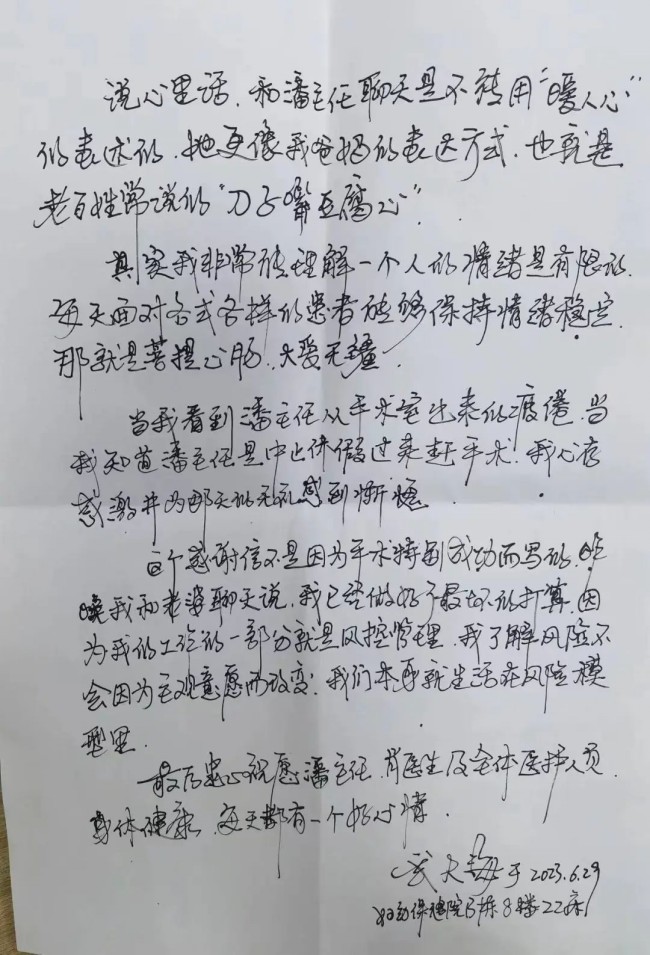 说心里话,和潘主任聊天是不能用“暖人心”
的表述的,她更像我爸妈的表达方式,也就是
老百姓常说的“刀子嘴豆腐心”.
其实我非常能理解一个人的情绪是有限的.
每天面对各式各样的患者能够保持情绪稳定.
那就是菩提心肠,大爱无疆.
当我看到潘主任从手术室出来的疲倦.当
我知道潘主任是中止休假过来赶手术.我心存
感激并为那天的无礼感到惭愧
这个感谢信不是因为手术特别成功而写的.昨
晚我和老婆聊天说,我已经做好了最坏的打算.因
为我的工作的一部分就是风控管理.我了解风险不
会因为主观意愿而改变.我们本身就生活在风险模
型里.
最后衷心祝愿潘主任.肖医生及全体医护人员.
身体健康.每天都有一个好心情.
于2023.6.29
妇幼保健院B栋8楼22床